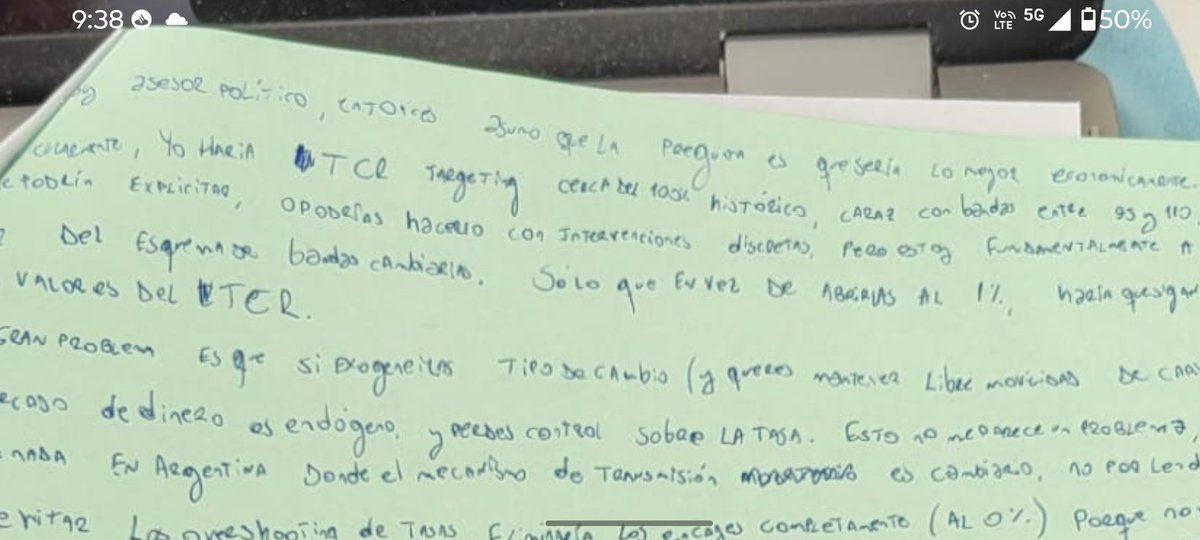 9:38
Vo)) LTE 5G 50%
asesor político, entonces asumo que la pregunta es que sería lo mejor economicamente.
coherente, Yo Haría TCR Targeting cerca del 100% histórico, capaz con bandas entre 95 y 110
e podría explicitar, o podrías hacerlo con intervenciones discretas, pero estoy fundamentalmente a
del esquema de bandas cambiarias. Sólo que en vez de abrirlas al 1%, haría que sigan
valores del TCR.
GRAN PROBLEMA es que si exogeneizas tipo de cambio (y queres mantener libre movilidad de
ecado de dinero es endógeno, y perdes control sobre la tasa. Esto no me parece un problema,
nada en Argentina donde el mecanismo de transmisión es cambiario, no por
evitar los overshooting de tasas eliminaría los encajes completamente (al 0%) porque no